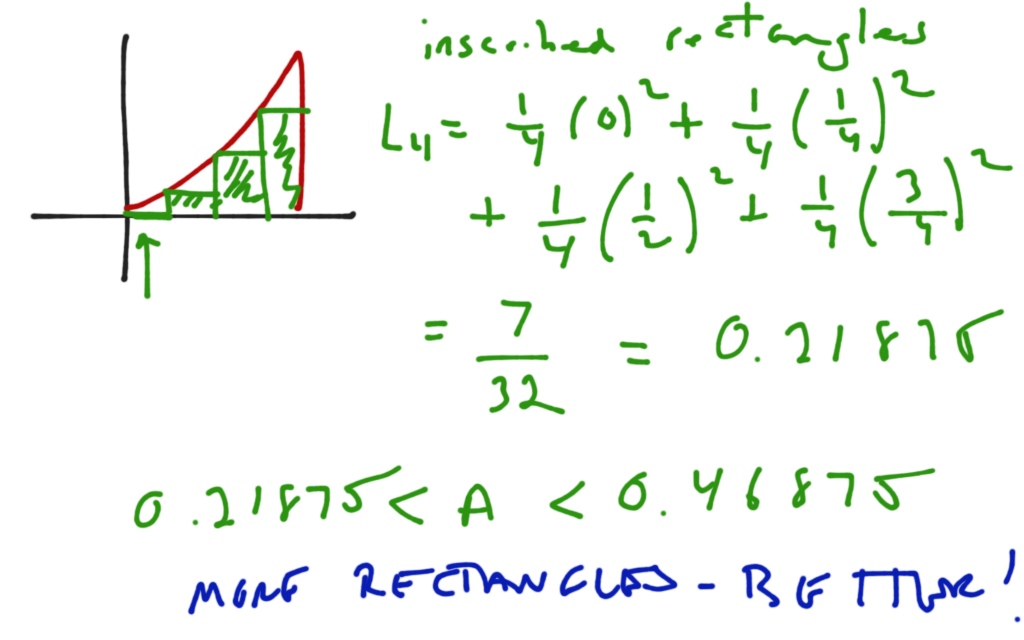 inscribed rectangles
L₄ = 1/4 (0)² + 1/4 (1/4)²
+ 1/4 (1/2)² + 1/4 (3/4)²
= 7/32 = 0.21875
0.21875 < A < 0.46875
MORE RECTANGLES - BETTER!